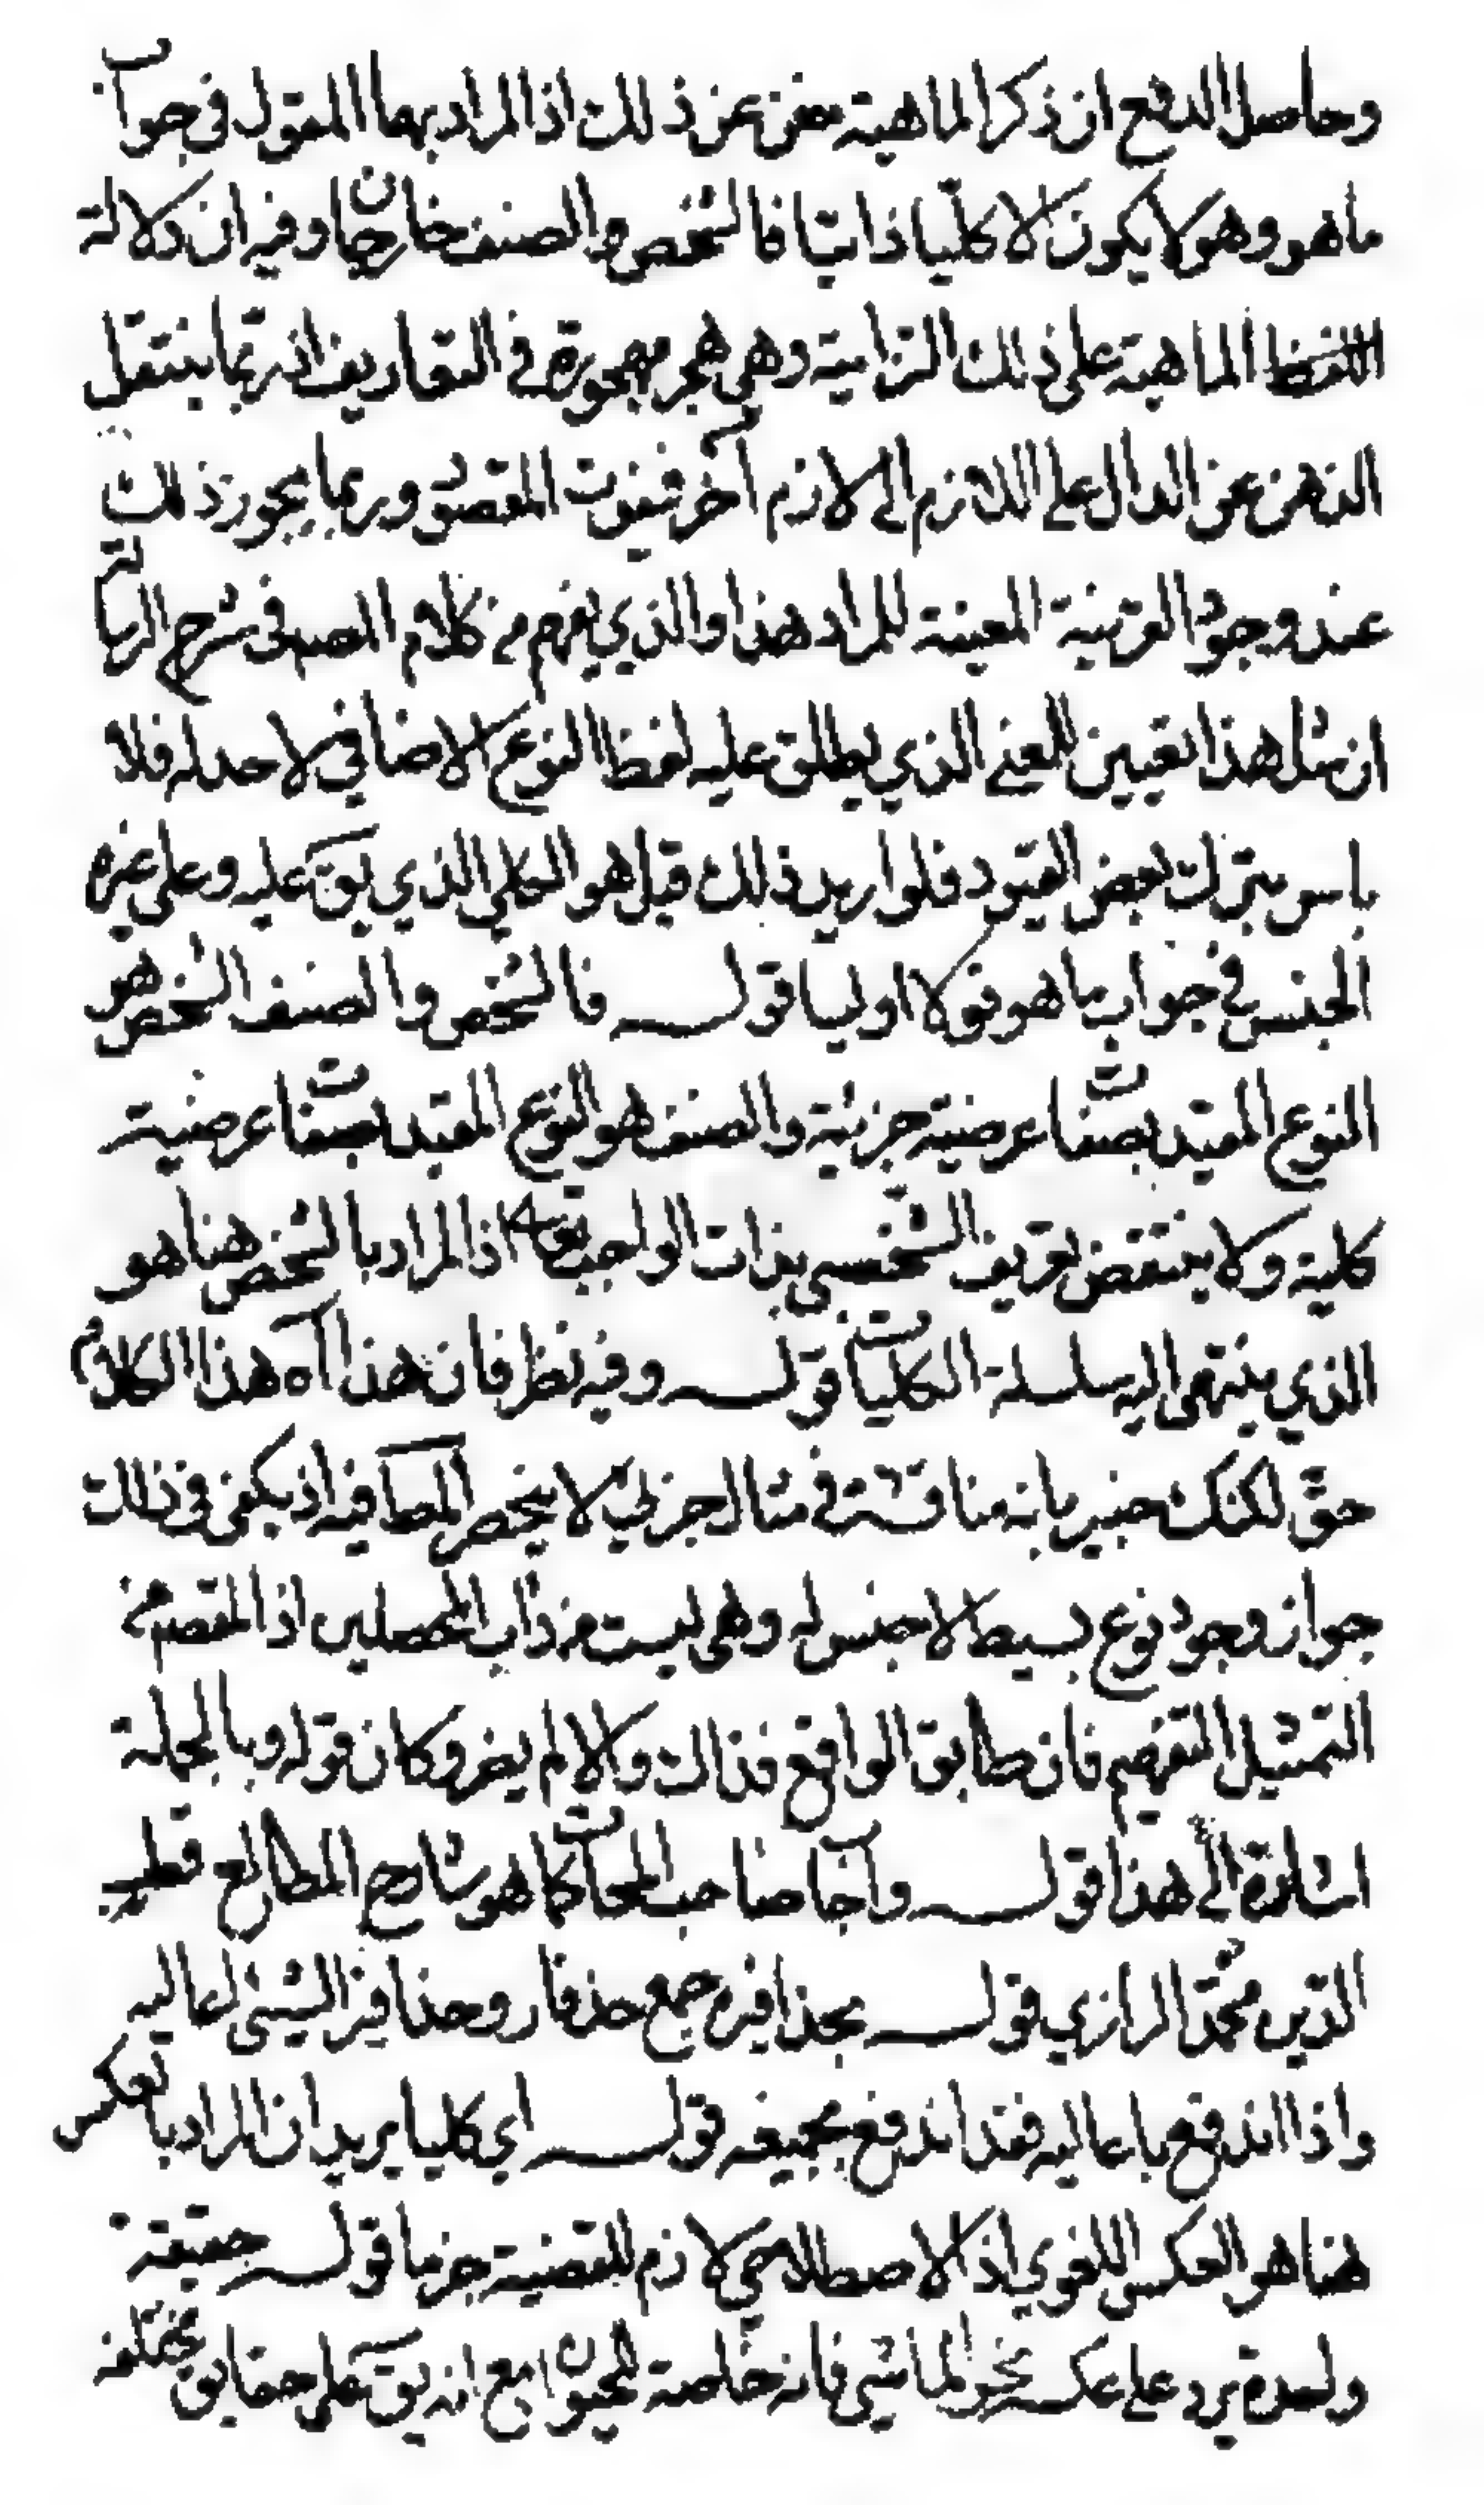 وحاصل الدفع ان ذكر الماهية مغن عن ذلك اذ المراد بها المقول في جواب
ما هو وهو لا يكون الا كليا ذاتيا فالشخص والصنف خارجان وفيه ان دلالة
اللفظ الماهية على ذلك التزامية وهي مهجورة في التعاريف اذ ربما ينتقل
الذهن عن الدال على اللازم الى لازم آخر فيفوت المقصود وربما يجوز ذلك
عند وجود القرينة المعينة للمراد هذا والذي يفهم من كلام المص في شرح الرسالة
ان مثل هذا تعيين للمعنى الذي يطلق عليه لفظ النوع الاضافي لا حد له فلا
باس بترك بعض القيود فلو اريد ذلك قيل هو الكلي الذي يق عليه وعلى غيره
الجنس في جواب ما هو قولا اوليا قولـه فالشخص والصنف الشخص هو
النوع المقيد بصفات عرضية جزئية والصنف هو النوع المقيد بصفات عرضية
كلية ولا ينتقض تعريف الشخص بذات الواجب تعالى اذ المراد بالشخص هنا هو
الذي ينتهي اليه سلسلة الكليات قولـه وفيه نظر فان هذا آه هذا الكلام
حق لكنك خبير بانه مناقشة في مثال جزئي لا ينحصر المص فيه اذ يكفي في ذلك
جواز وجود نوع بسيط لا جنس له وهي ليست من داب المحصلين اذ المقصد من
التمثيل التفهيم فان طابق الواقع فذاك والا لم يضر وكان قوله وبالجملة
اشارة الى هذا قولـه وأجاب صاحب المحاكمات هو شارح المطالع قطب
الدين محمد الرازي قولـه بحذافيره جمع حذفار وحذافير الشيئ اعاليه
واذا اندفع باعاليه فقد اندفع بجميعه قولـه اي كليا يريد ان المراد بالعكس
هنا هو العكس اللغوي اذ الاصطلاحي لازم للقضية جزما قولـه حقيقة
ولعده يرد على عكسه نحو الماشي فانه خاصة للحيوان مع انه يق على حقايق مختلفة